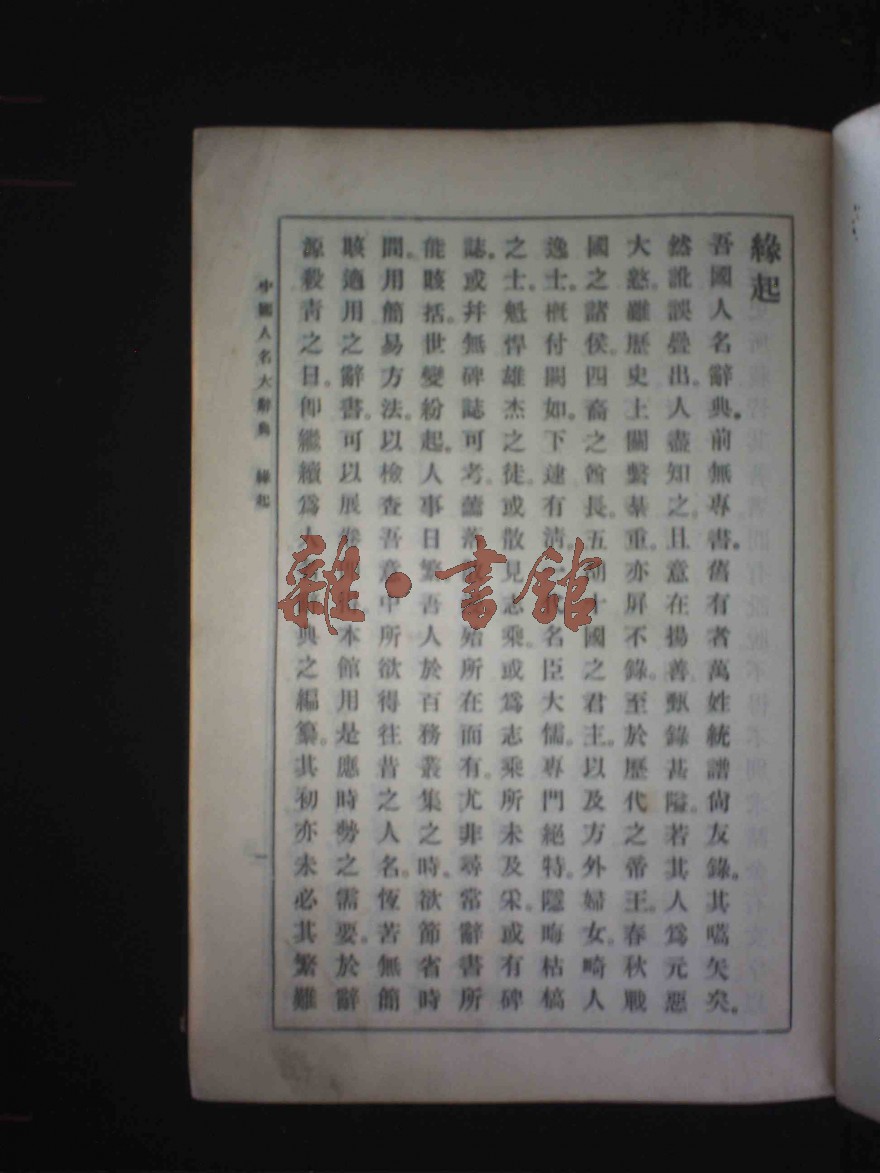 緣起
吾國人名辭典。前無專書。舊有者萬姓統譜尙友錄。其嚆矢矣。
然訛誤疊出。人盡知之。且意在揚善。甄錄甚隘。若其人爲元惡
大憝。雖歷史上關繫綦重。亦屏不錄。至於歷代之帝王。春秋戰
國之諸侯。四裔之酋長。五胡十國之君主。以及方外婦女。畸人
逸士。槪付闕如。下逮有淸一代名臣大儒。專門絕特。隱晦枯槁
之士。魁悍雄杰之徒。或散見志乘。或爲志乘所未及采。或有碑
誌。或幷無碑誌可考。落始所在而有。尤非尋常辭書所
能賅括。世變紛起。人事日繁。吾人於百務叢集之時。欲節省時
間。用簡易方法。以檢查吾意中所欲得往昔之人名。恆苦無簡
賅適用之辭書。可以展卷卽得。本館用是應時勢之需要。於辭
源殺靑之日。卽繼續爲人名辭典之編纂。其初亦未必其繁難
中國人名大辭典 緣起 一
雜·書館